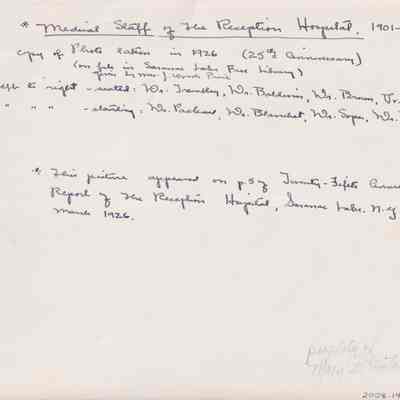 * Medical Staff of the Reception Hospital, 1901-
copy of Photo taken in 1926 (25th Anniversary)
(on file in Saranac Lake Free Library)
given by Mrs. J. Woods Price
left to right - seated: Dr. Trembley, Dr. Baldwin, Dr. Brown, Dr.
" " " - standing: Dr. Packard, Dr. Blanchet, Dr. Soper, Dr.
* This picture appeared on p. 5 of Twenty-Fifth Annual
Report of the Reception Hospital, Saranac Lake, N.Y.
March 1926.
property of
2008.14